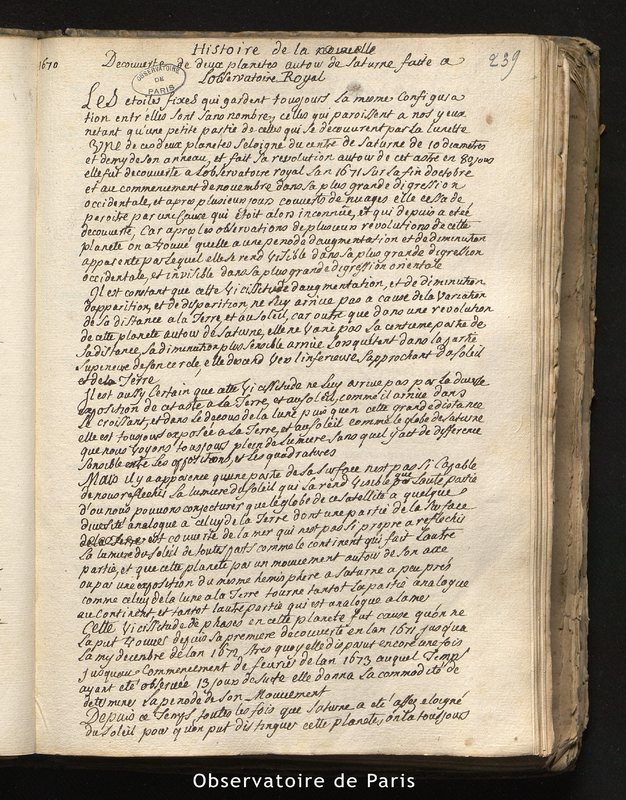 Histoire de la nouvelle
239
1670
Decouverte de deux planetes autour de Saturne faite a
Lobservatoire Royal
OBSERVATOIRE
DE
PARIS
LES etoiles fixes qui gardent tousjours la mesme configura
tion entr elles sont sans nombre, celles qui paroissent a nos yeux
netant qu'une petite partie de celles qui se decouvrent par la lunette
UNE de ces deux planetes seloigne du centre de Saturne de 10 diametres
et demy de son anneau, et fait sa revolution autour de cet astre en 80 jours
elle fut decouverte a Lobservatoire royal Lan 1671 sur la fin doctobre
et au commencement de novembre dans sa plus grande digression
occidentale, et apres plusieurs jours couverts de nuages elle cessa de
paroitre par un Cause qui etoit alors inconnüe, et qui depuis a eteé
decouverte, Car apres les observations de plusieurs revolutions de cette
planete on a trouvé quelle a une periode daugmentation et de diminution
apparente par lequel elle se rend visible dans sa plus grande digression
occidentale, et invisible dans sa plus grande digression orientale
Il est constant que cette vicissitude daugmentation, et de diminution
dapparition, et de disparition, ne luy arrive pas a cause de la variation
de sa distance a la Terre, et au soleil, car outre que dans une revolution
de cette planete autour de Saturne, elle ne varie pas la centieme partie de
sa distance, sa diminution plus sensible arrive lorsquetant dans la partie
superieure de son cercle elle descend vers linferieure, sapprochant du soleil
et de la Terre
Il est aussy certain que cette vicissitude ne luy arrive pas par la diverse
exposition de cet astre a la Terre, et au soleil, comme il arrive dans
le croissant, et dans le decours de la lune puis quen cette grande distance
elle est tousjours exposée a la Terre, et au soleil comme le globe de Saturne
que nous voyons tousjours plein de lumiere sans quil y ait de difference
sensible entre les oppositions, et les quadratures
Mais il y a apparence qu'une partie de sa surface nest pas si capable
de nous reflechir la lumiere du soleil qui la rend visible que lautre partie
d'ou nous pouvons conjecturer que le globe de ce satellite a quelque
diversité analogue a celuy de la Terre dont une partie de la surface
de la Terre est couverte de la mer qui nest pas si propre a reflechir
la lumiere du soleil de toutes parts comme le continent qui fait Lautre
partie, et que cette planete par un mouvement autour de son axe
ou par une exposition du mesme hemisphere a Saturne a peu prés
comme celuy de la lune a la Terre tourne tantot la partie analogue
au Continent, et tantot lautre partie qui est analogue a la mer
Cette vicissitude de phases en cette planete fut cause quon ne
la put trouver depuis sa premiere découverte en lan 1671 jusqua
la my decembre de lan 1672, Apres quoy elle disparut encore une fois
jusquau Commencement de fevrier de lan 1673 auquel Temps
ayant eté observée 13 jours de suite elle donna la commodité de
determiner la periode de son Mouvement
Depuis ce Temps toutes les fois que Saturne a eté assez eloigné
du soleil pour quon put distinguer cette planete, on la tousjours
Observatoire de Paris